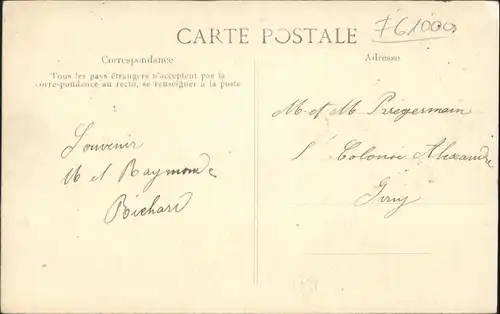 CARTE POSTALE
761000
Correspondance
Adresse
Tous les pays étrangers n'acceptent pas la
correspondance au recto, se renseigner à la poste
Souvenir
M et Raymonde
Richard
M. et M Priegermain
Colonie Alexandre
Giry